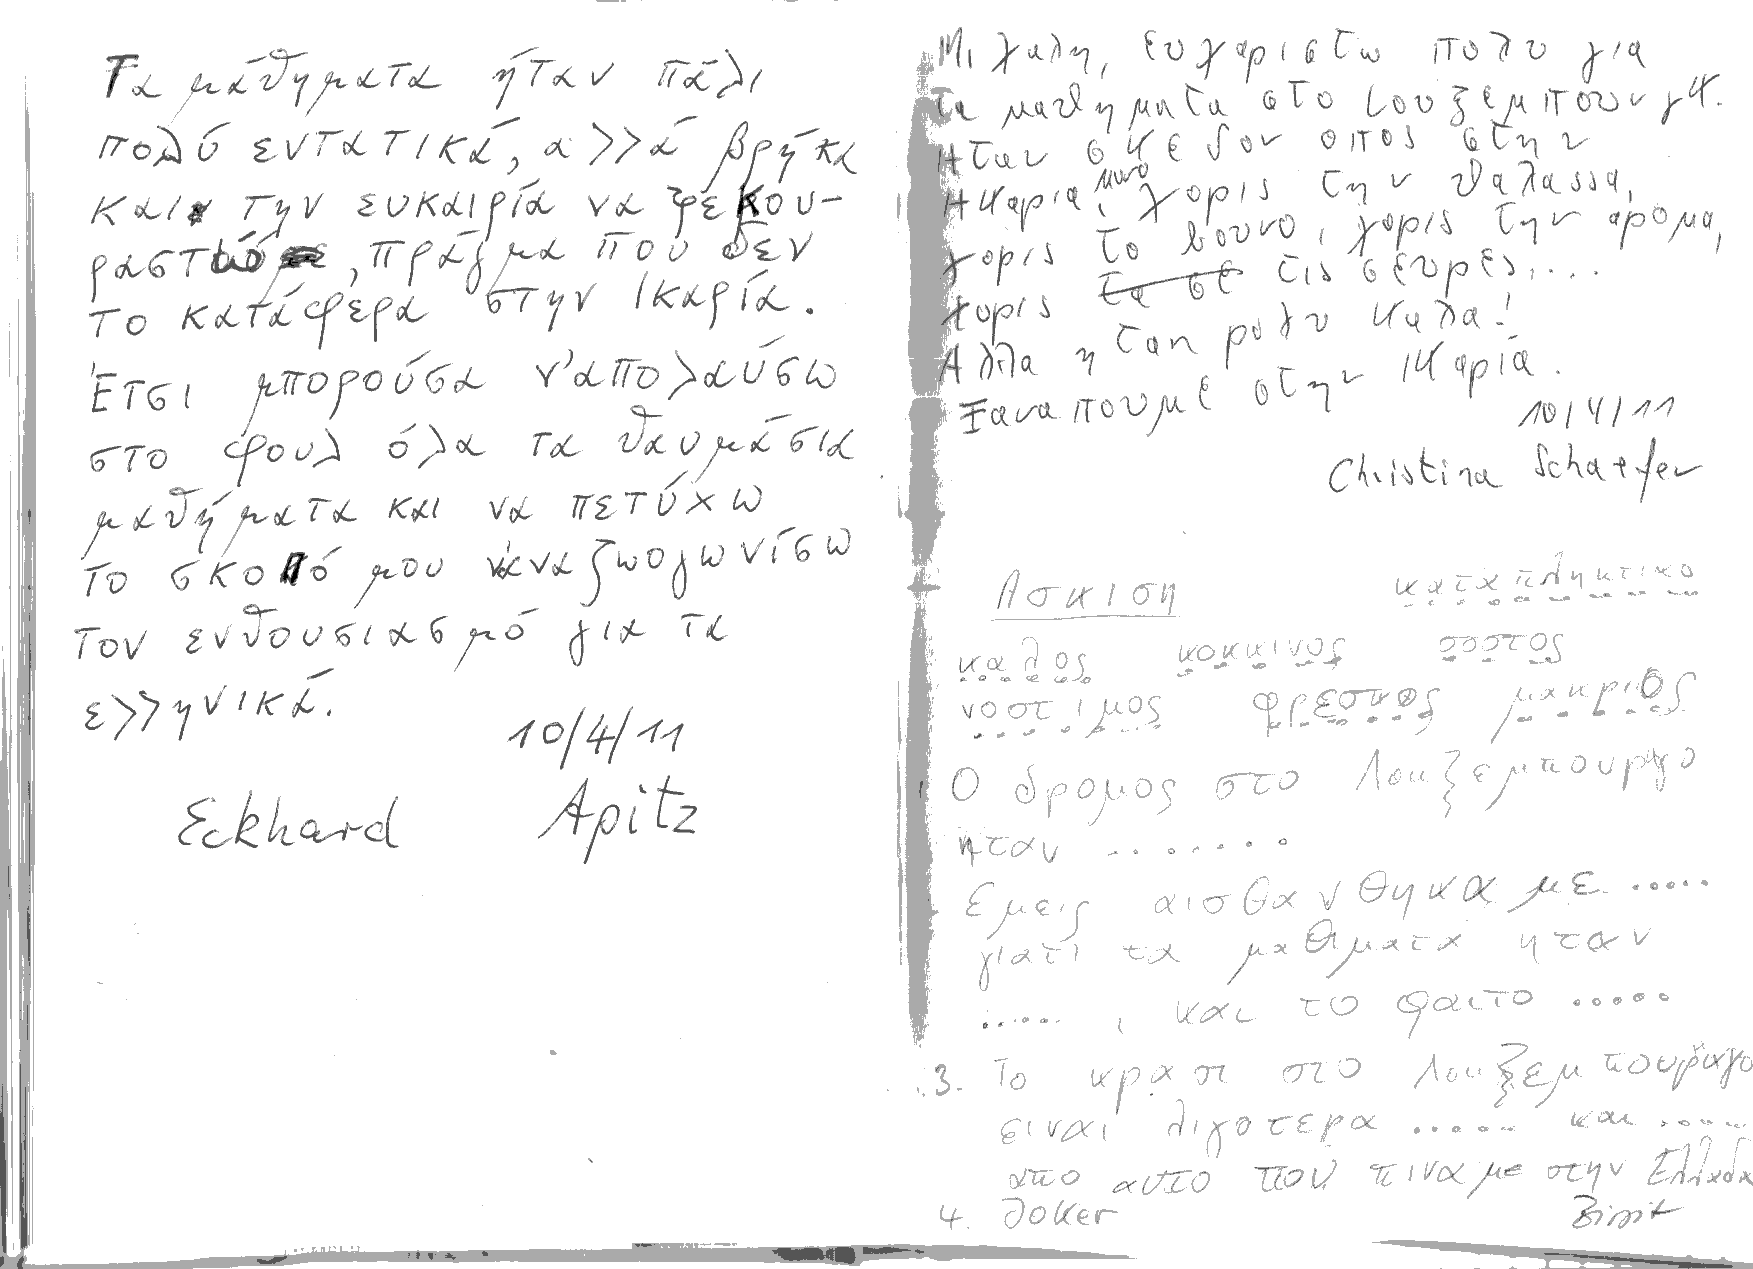 Τα μάθηματα ήταν πάλι
πολύ εντατικά, αλλά βρήκα
και την ευκαιρία να ξεκου-
ραστώ, πράγμα που δεν
το κατάφερα στην Ικαρία.
Έτσι μπορούσα ν'απολαύσω
στο φουλ όλα τα θαυμάσια
μαθήματα και να πετύχω
το σκοπό μου νάναζωογωνίσω
τον ενθουσιασμό για τα
ελληνικά.
10/4/11
Eckhard Apitz
Μιχαλη, ευχαριστω πολυ για
τα μαθηματα στο Λουξεμπουργκ.
Ηταν σκεδον οπος στην
Ικαρια, μονο χορις την θαλασσα,
χορις το βουνο, χορις την αρομα,
χορις τα σε τις σευρες....
Αλλα ηταν πολυ καλα!
Ξαναπουμε στην Ικαρία.
10/4/11
Christina Schaefer
Ασκιση καταπληκτικο
καλος κοκκινος σοστος
νοστιμος φρεσκος μακριος
Ο δρομος στο Λουξεμπουργο
ηταν .......
Εμεις αισθανθηκαμε .....
γιατι τα μαθιματα ηταν
....., και το φαιτο .....
3. Το κρασι στο Λουξεμπουργο
ειναι λιγοτερα ..... και .....
απο αυτο που πιναμε στην Ελλαδα
4. Joker Birgit